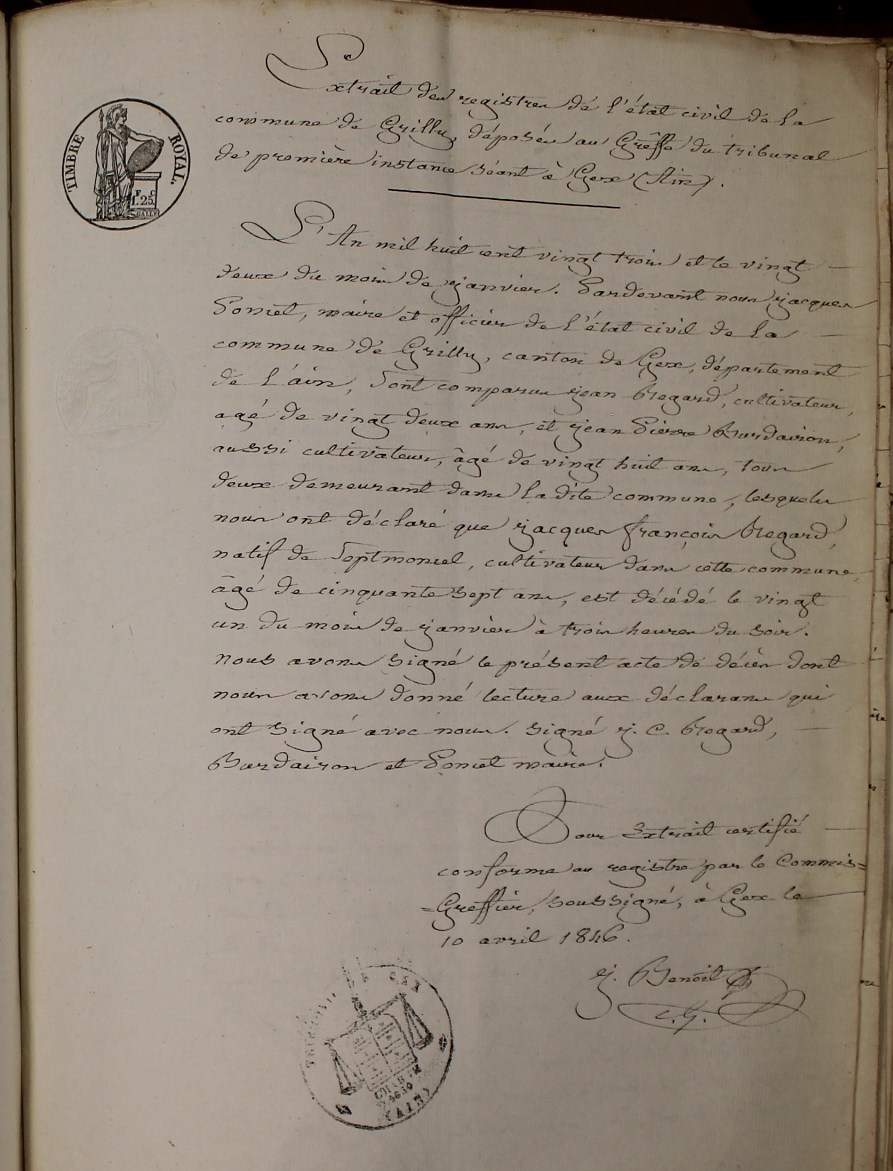 TIMBRE ROYAL.
1.F 25.C
Extrait des registres de l'état civil de la
commune de Grilly, déposés au Greffe du tribunal
de première instance séant à Gex (Ain).
L'An mil huit cent vingt trois et le vingt
deux du mois de janvier. Pardevant nous jacques
Poncet, maire et officier de l'état civil de la
commune de Grilly, canton de Gex, département
de l'ain, sont comparus jean Regard, cultivateur,
agé de vingt deux ans, et jean Pierre Burdairon,
aussi cultivateur, âgé de vingt huit ans, tous
deux demeurant dans la dite commune, lesquels
nous ont déclaré que jacques françois Regard,
natif de Septmoncel, cultivateur dans cette commune,
âgé de cinquante sept ans, est décédé le vingt
un du mois de janvier à trois heures du soir.
nous avons signé le présent acte de décès dont
nous avons donné lecture aux déclarans qui
ont signé avec nous. signé j. C. Regard,
Burdairon et Poncet maire.
Pour Extrait certifié
conforme au registre par le Commis=
=Greffier, soussigné, à Gex le
10 avril 1846.
j. Benoit
c. G.
TRIBUNAL DE GEX
CHARTE
1830
(AIN)